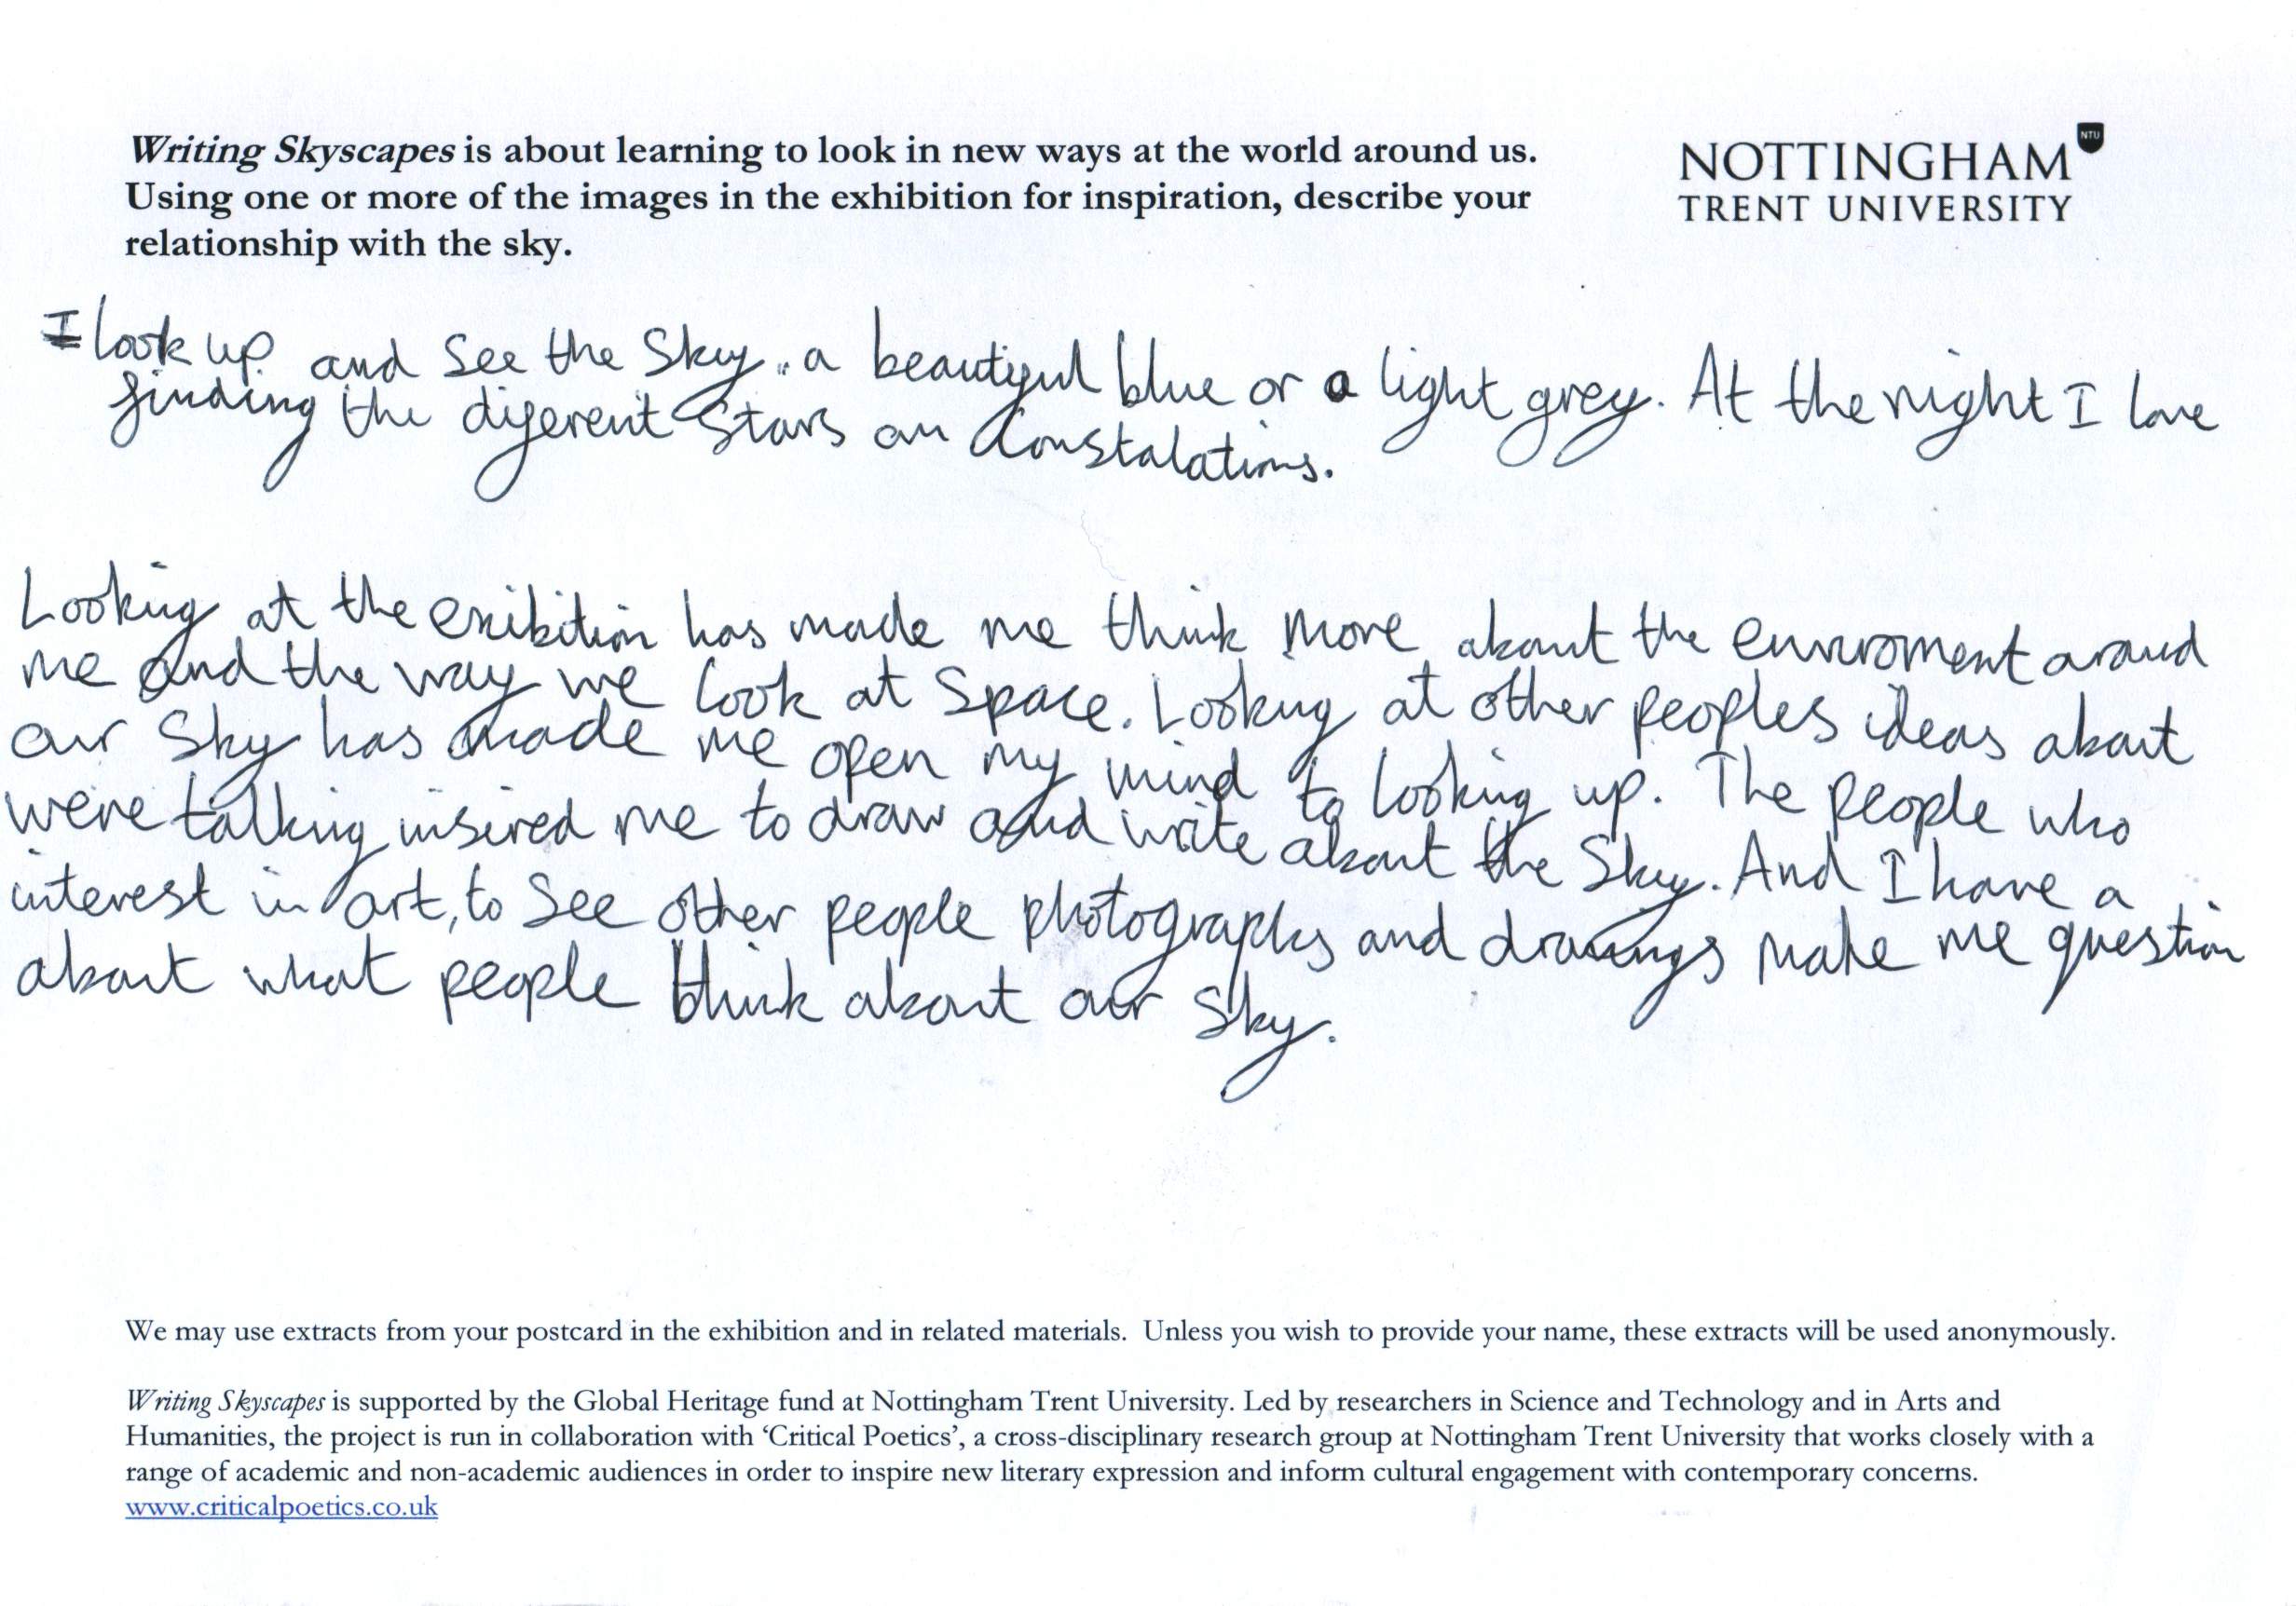 Writing Skyscapes is about learning to look in new ways at the world around us.
Using one or more of the images in the exhibition for inspiration, describe your
relationship with the sky.
NTU
NOTTINGHAM
TRENT UNIVERSITY
I look up and see the sky.. a beautiful blue or a light grey. At the night I love
finding the diferent stars an constalations.
Looking at the exibition has made me think more about the enviroment aroud
me and the way we look at space. Looking at other peoples ideas about
our sky has made me open my mind to looking up. The people who
were talking insired me to draw and write about the sky. And I have a
interest in art, to see other people photographs and drawings make me question
about what people think about our sky.
We may use extracts from your postcard in the exhibition and in related materials. Unless you wish to provide your name, these extracts will be used anonymously.
Writing Skyscapes is supported by the Global Heritage fund at Nottingham Trent University. Led by researchers in Science and Technology and in Arts and
Humanities, the project is run in collaboration with ‘Critical Poetics’, a cross-disciplinary research group at Nottingham Trent University that works closely with a
range of academic and non-academic audiences in order to inspire new literary expression and inform cultural engagement with contemporary concerns.
www.criticalpoetics.co.uk